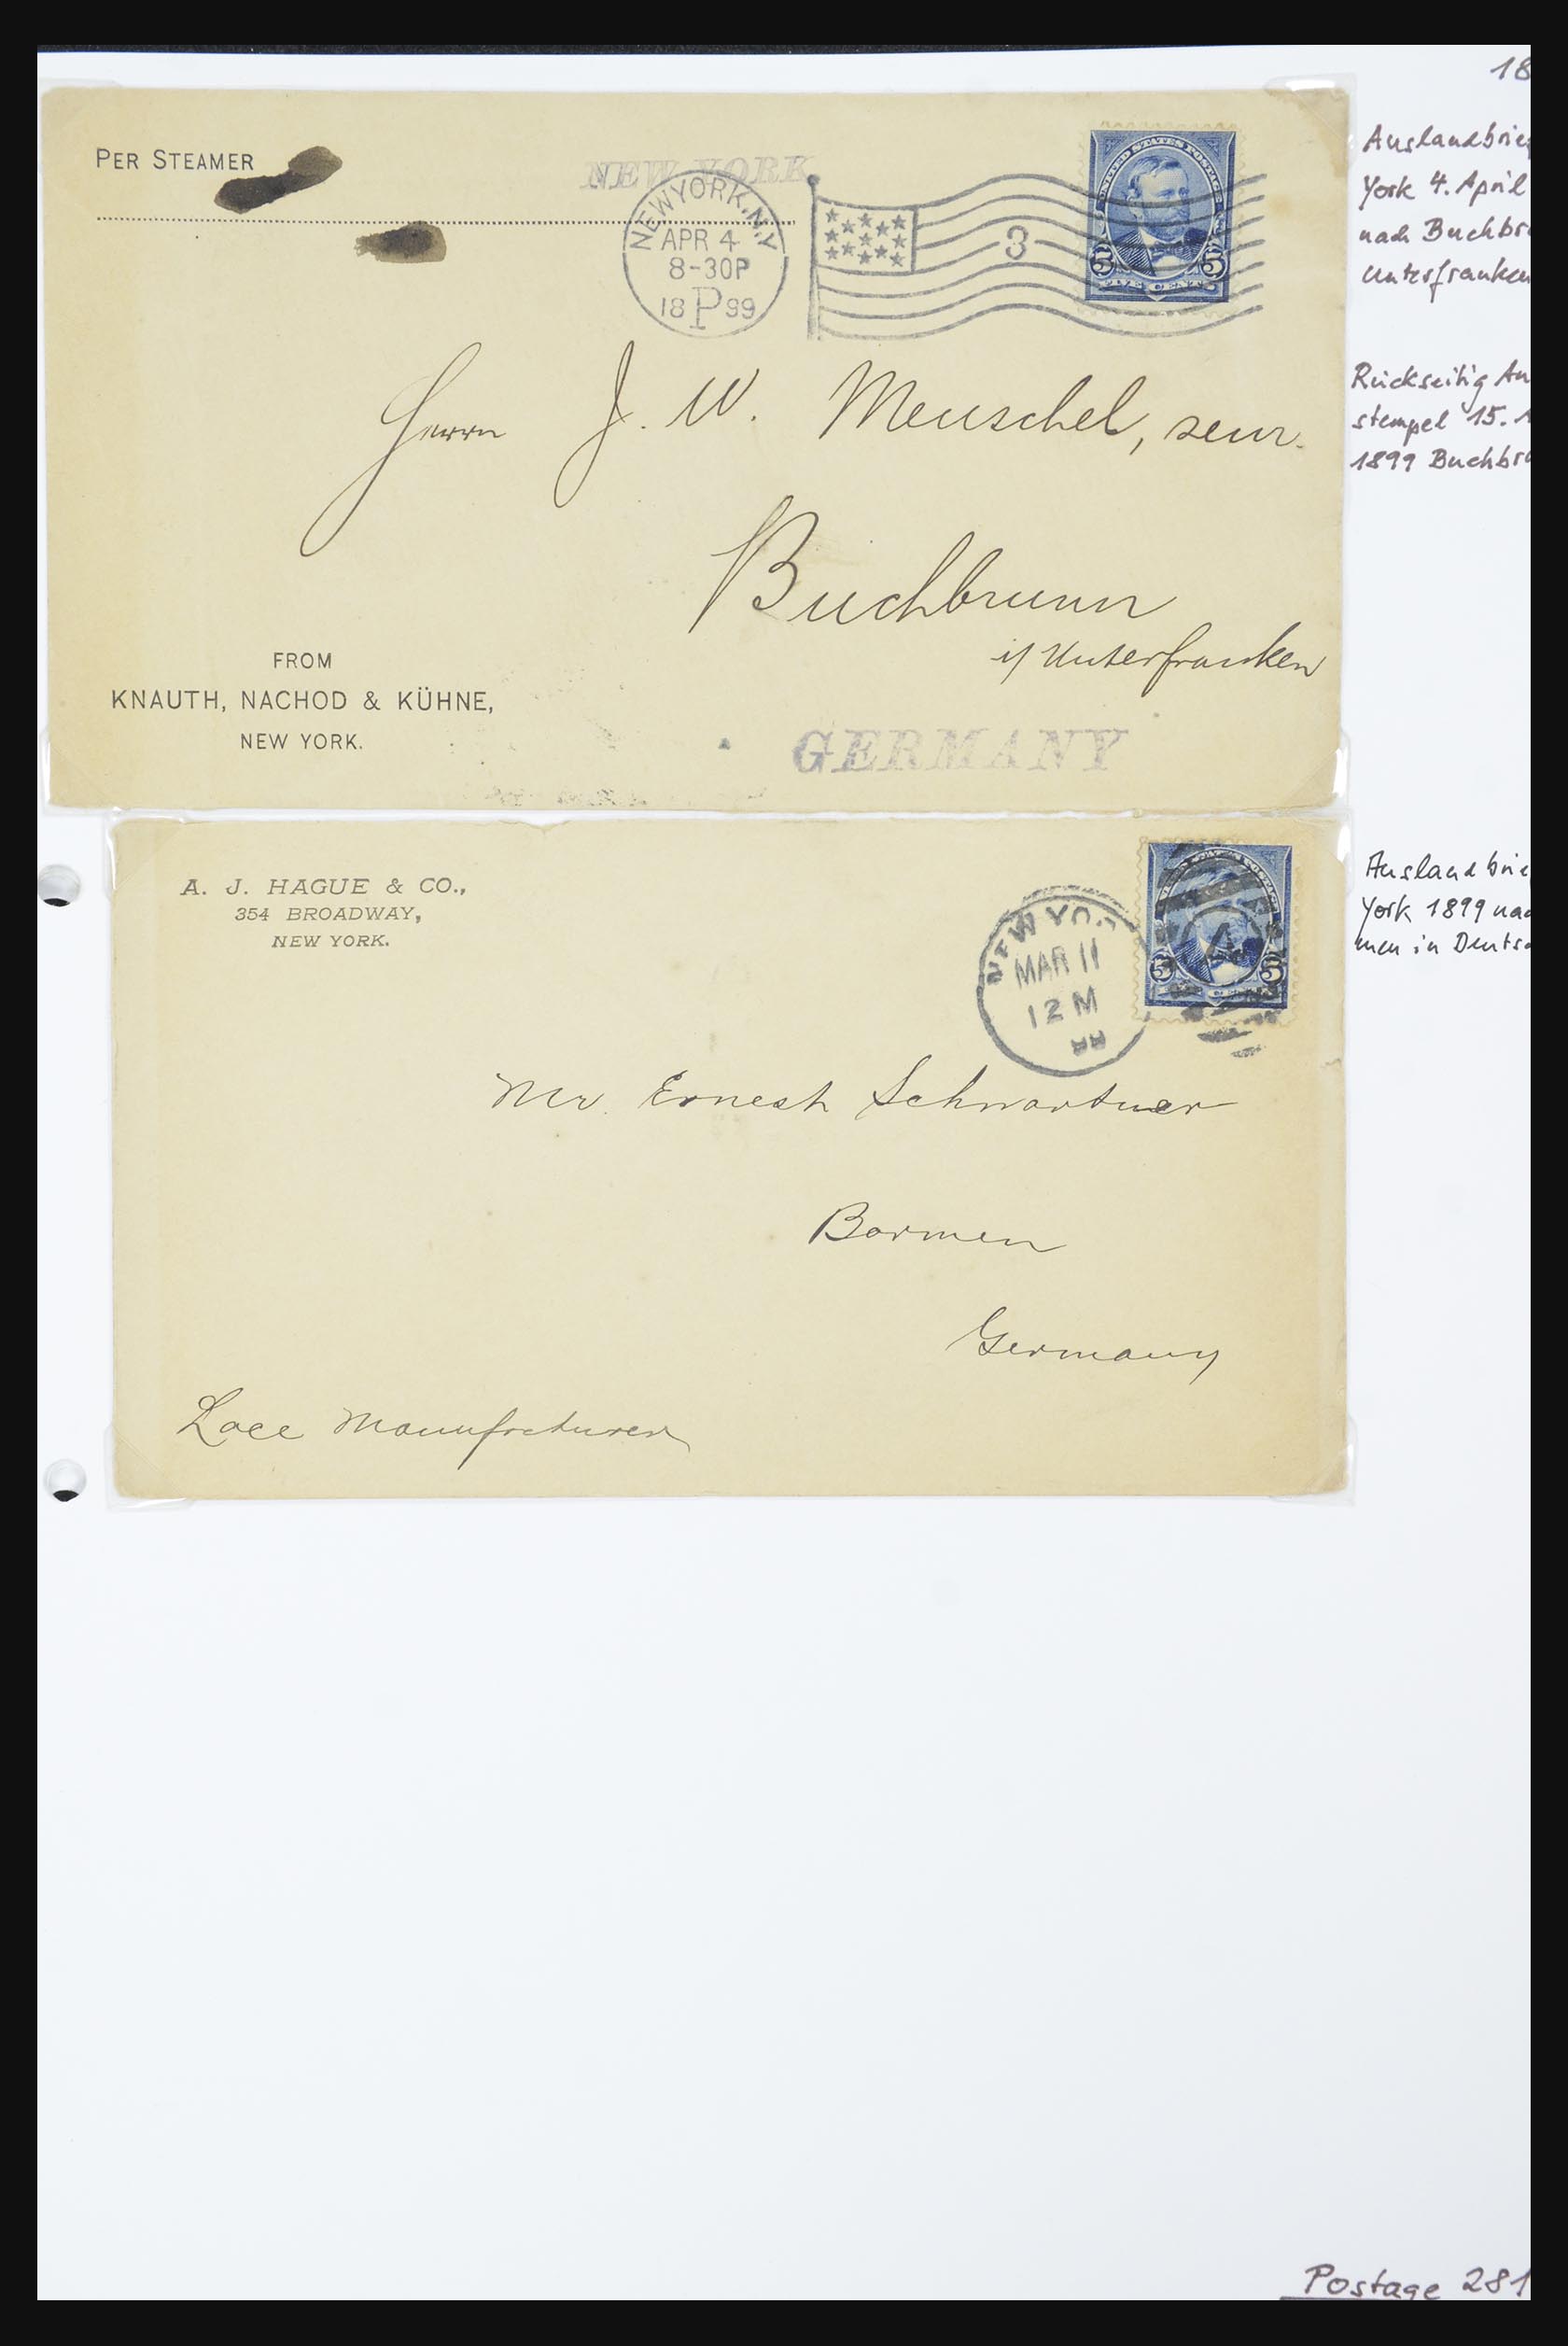 18
PER STEAMER
NEW YORK
NEW YORK, N.Y
APR 4
8-30P
18 P 99
3
UNITED STATES POSTAGE
5 5
FIVE CENTS
Herrn J. W. Meuschel, senr.
Buchbrunn
i/ Unterfranken
FROM
KNAUTH, NACHOD & KÜHNE,
NEW YORK.
GERMANY
Auslandbrie
York 4. April
nach Buchbr
Unterfranken
Rückseitig An
stempel 15.
1899 Buchbr
A. J. HAGUE & CO.,
354 BROADWAY,
NEW YORK.
NEW YO
MAR 11
12 M
5 5
Mr. Ernest Schwartner
Barmen
Germany
Lace Manufacturer
Auslandbrie
York 1899 nac
men in Deuts
Postage 281